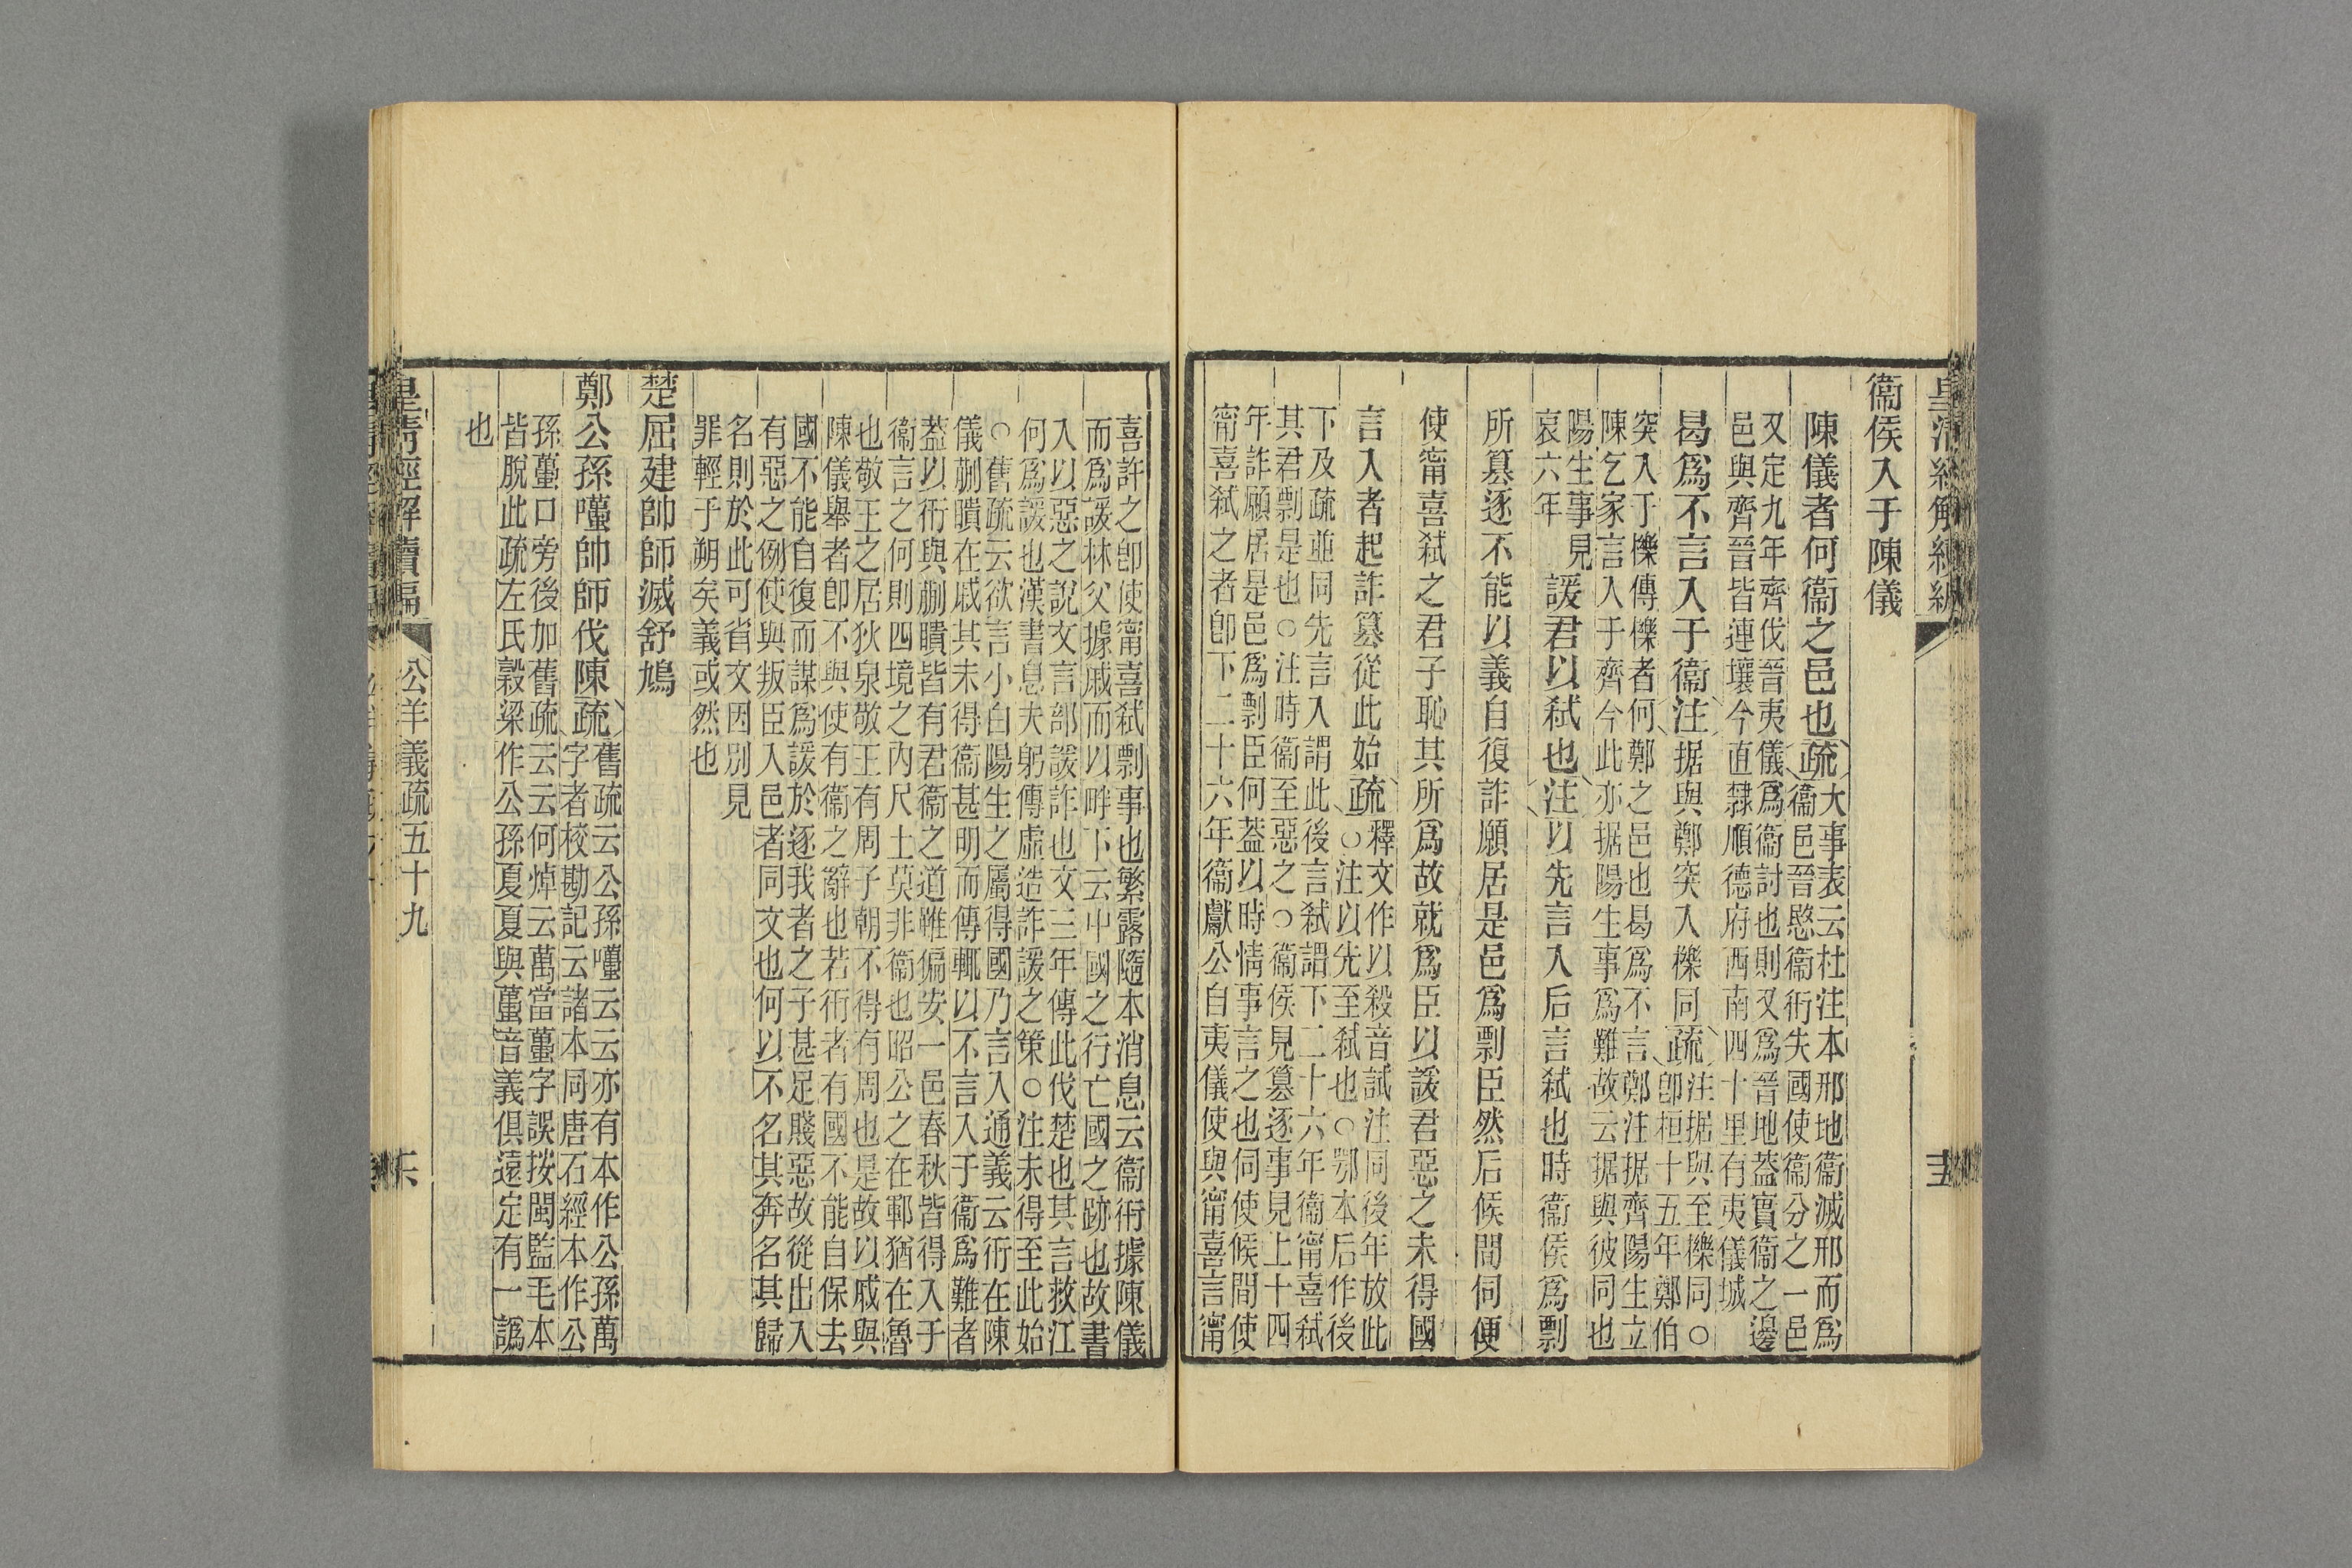 衞侯入于陳儀
陳儀者何衞之邑也疏
大事表云杜注本邢地衞滅邢而爲
衞邑晉愍衞衎失國使衞分之一邑
又定九年齊伐晉夷儀爲衞討也則又爲晉地葢實衞之邊
邑與齊晉皆連壤今直隸順德府西南四十里有夷儀城
曷爲不言入于衞注据與鄭突入櫟同疏
注据與至櫟同○
卽桓十五年鄭伯
突入于櫟傳櫟者何鄭之邑也曷爲不言鄭注据齊陽生立
陳乞家言入于齊今此亦据陽生事爲難故云据與彼同也
陽生事見
哀六年
諼君以弑也注以先言入后言弑也時衞侯爲剽
所篡逐不能以義自復詐願居是邑爲剽臣然后候間伺便
使甯喜弑之君子恥其所爲故就爲臣以諼君惡之未得國
言入者起詐篡從此始疏
釋文作以殺音試注同後年放此
○注以先至弑也○鄂本后作後
下及疏並同先言入謂此後言弑謂下二十六年衞甯喜弑
其君剽是也○注時衞至惡之○衞侯見篡逐事見上十四
年詐願居是邑爲剽臣何葢以時情事言之也伺使候間使
甯喜弑之者卽下二十六年衞獻公自夷儀使與甯喜言甯
喜許之卽使甯喜弑剽事也繁露隨本消息云衞衎據陳儀
而爲諼林父據戚而以畔下云中國之行亡國之跡也故書
入以惡之說文言部諼詐也文三年傳此伐楚也其言救江
何爲諼也漢書息夫躬傳虛造詐諼之策○注未得至此始
○舊疏云欲言小白陽生之屬得國乃言入通義云衎在陳
儀蒯聵在戚其未得衞甚明而傳輒以不言入于衞爲難者
葢以衎與蒯聵皆有君衞之道雖偏安一邑春秋皆得入于
衞言之何則四境之內尺土莫非衞也昭公之在鄆猶在魯
也敬王之居狄泉敬王有周子朝不得有周也是故以戚與
陳儀舉者卽不與使有衞之辭也若衎者有國不能自保去
國不能自復而謀爲諼於逐我者之子甚足賤惡故從出入
有惡之例使與叛臣入邑者同文也何以不名其奔名其歸
名則於此可省文因別見
罪輕于朔矣義或然也
楚屈建帥師滅舒鳩
鄭公孫囆帥師伐陳疏
舊疏云公孫囆云云亦有本作公孫萬
字者校勘記云諸本同唐石經本作公
孫蠆口旁後加舊疏云云何焯云萬當蠆字誤按閩監毛本
皆脫此疏左氏穀梁作公孫夏夏與蠆音義俱遠定有一譌
也
皇淸經解續編
公羊義疏五十九